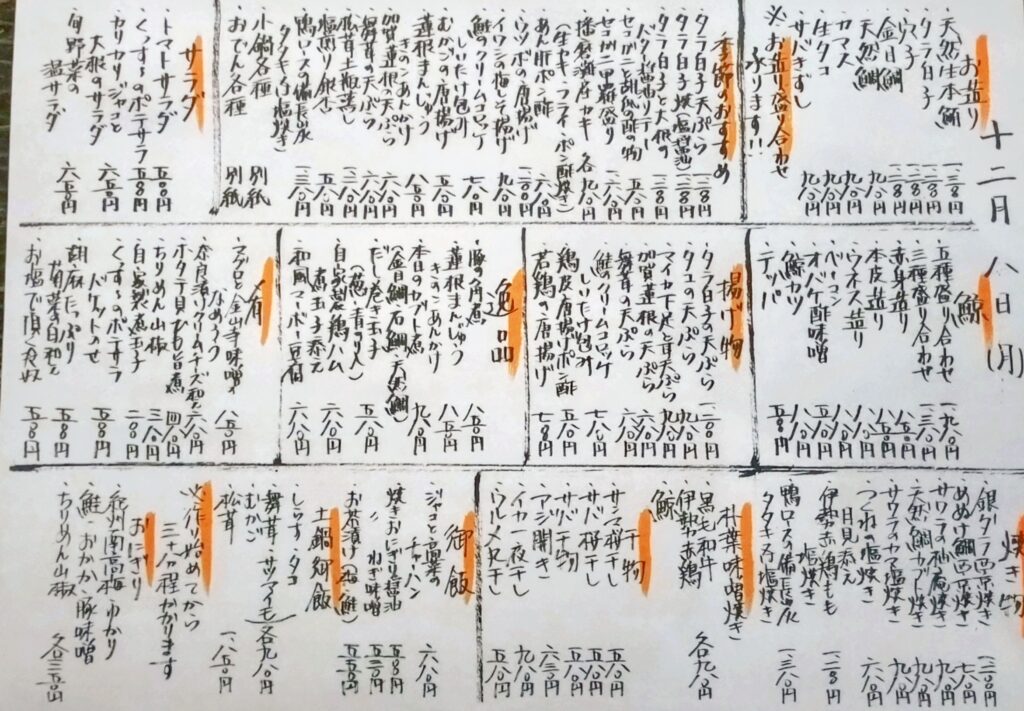 十二月八日(月)
お造り
・天然生本鮪 一二八〇円
・タラ白子 一二八〇円
・穴子
・金目鯛
・天然鯛
・カマス 九八〇円
・生タコ 九八〇円
・サバきずし 九八〇円
※お造り盛り合わせ
承ります!!
季節のおすすめ
・タラ白子天ぷら
・タラ白子焼(塩・醤油)
・タラ白子と大根の
バター醤油ソテー
・セコガニと胡瓜の酢の物
・セコガニ甲羅盛り
・播磨灘産カキ 各九八〇円
(生カキ・フライ・ポン酢焼き)
・あん肝ポン酢
・ウツボの唐揚げ
・イワシの梅しそ揚げ 九八〇円
・鮭のクリームコロッケ
しいたけ包み 七八〇円
・むかごの唐揚げ 五八〇円
・蓮根まんじゅう
きのこあんかけ 八五〇円
・加賀蓮根の天ぷら 六八〇円
・舞茸の天ぷら 六八〇円
・松茸土瓶蒸し
・塩煎り銀杏 五八〇円
・鴨ロースの備長炭
タタキ(又は塩焼き) 一三八〇円
・小鍋各種 別紙
・おでん各種 別紙
サラダ
・トマトサラダ 五八〇円
・くずきりのポテサラ 五八〇円
・カリカリジャコと
大根のサラダ 六五〇円
・旬野菜の
温サラダ 六五〇円
鯨
・五種盛り合わせ 一九八〇円
・三種盛り合わせ 一三八〇円
・赤身造り
・本皮造り
・ウネス造り
・ベーコン
・オバケ酢味噌
・鯨カツ
・テッパ
揚げ物
・タラ白子の天ぷら
・マイカ下足と茸天ぷら 九八〇円
・タコの天ぷら 九八〇円
・加賀蓮根の天ぷら 六八〇円
・舞茸の天ぷら 六八〇円
・鮭クリームコロッケ
しいたけ包み 七八〇円
・鶏皮唐揚げポン酢 五八〇円
・若鶏の唐揚げ 七八〇円
逸品
・豚の角煮 八八〇円
・蓮根まんじゅう
きのこあんかけ 八五〇円
・本日のカブト煮 九八〇円
(金目鯛・石鯛・天然鯛)
・だし巻き玉子
(葱・青のり入) 五八〇円
・自家製鶏ハム
煮玉子添え 六八〇円
・和風マーボー豆腐 六八〇円
肴
・マグロと金山寺味噌の
なめろう 八五〇円
・奈良漬クリームチーズ和え 六八〇円
・ホタテ貝ひも旨煮 四八〇円
・ちりめん山椒 三八〇円
・自家製煮玉子 二〇〇円
・くずきりのポテサラ
バケットのせ 五八〇円
・胡麻たっぷり
菊菜白和え 五八〇円
・お塩で頂く冷奴 五八〇円
焼き物
・銀ダラ西京焼き
・めぬけ鯛西京焼き
・サワラの柚庵焼き 九八〇円
・天然鯛カブト焼き 九八〇円
・サワラのカマ塩焼き 九八〇円
・つくねの塩焼
月見添え 六八〇円
・伊勢赤鶏もも
塩焼き
・鴨ロースの備長炭
タタキ又は塩焼き 一三八〇円
朴葉味噌焼き
・黒毛和牛
・伊勢赤鶏 各九八〇円
・鯨
干物
・サンマ桜干し 五八〇円
・サバ桜干し 五八〇円
・サバ干物
・アジ開き 六三〇円
・イカ一夜干し 九八〇円
・ウルメ丸干し 五八〇円
御飯
・ジャコと高菜の
チャーハン 六八〇円
・焼きおにぎり醤油
〃 ねぎ味噌
・お茶漬け(梅・鮭) 五五〇円
土鍋御飯
・しらす・タコ
・舞茸・サツマイモ 各九八〇円
・むかご
・松茸 一八五〇円
※炊り始めてから
三十八分程かかります
おにぎり
・紀州南高梅・ゆかり
・鮭・おかか・豚味噌
・ちりめん山椒 各三五〇円